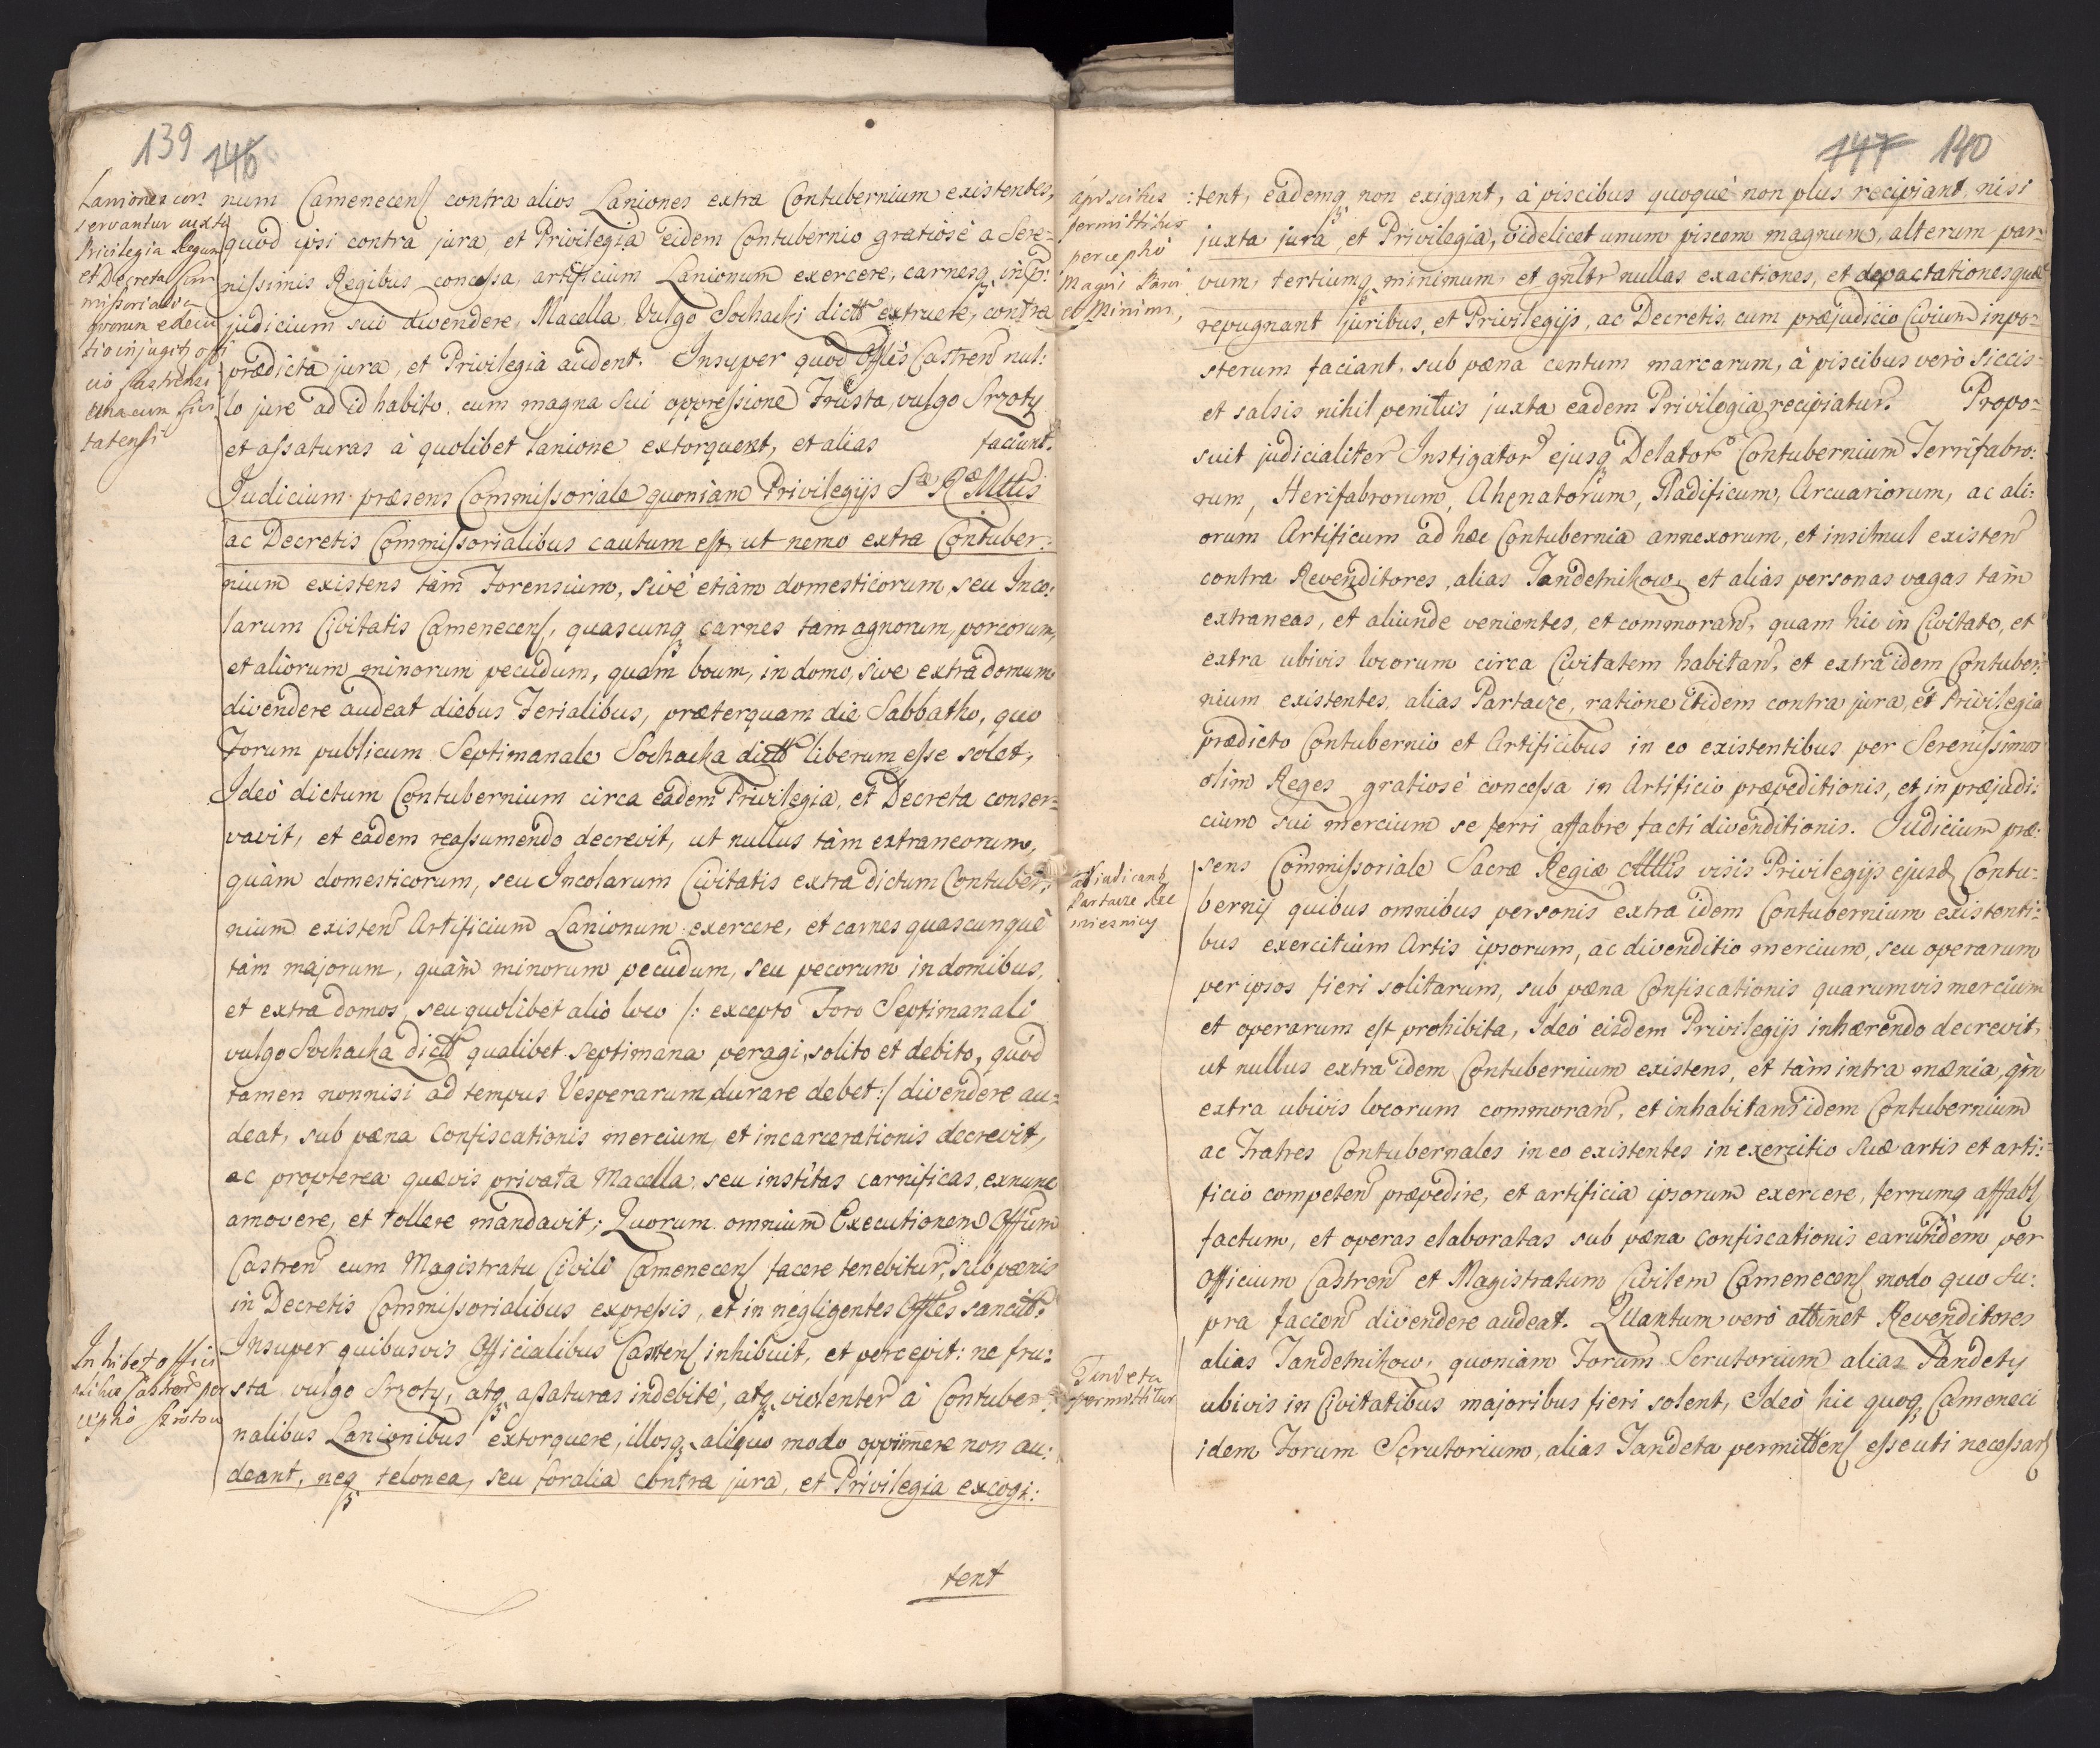 139 146
Laniones con
servantur iuxta
Privilegia Regum
et Decreta Com
missorialia
quorum execu
tio injugitr offi
cio Castrensi
una cum Civi
tatensi
num Camenecens contra alios Laniones extra Contubernium existentes,
quod ipsi contra jura, et Privilegia eidem Contubernio gratiosè a Sere-
nissimis Regibus concessa, artificium Lanionum exercere, carnesq in præ:
judicium sui divendere, Macella Vulgo Sochacki dictt extruere, contra
prædicta jura, et Privilegia audent. Insuper quod Offles Castren nul:
lo jure ad id habito, cum magna sui oppressione Frusta, vulgo Srzoty
et assaturas à quolibet lanione extorquent, et alias faciunt.
Judicium præsens Commissoriale quoniam Privilegijs Sæ Ræ Mttis
ac Decretis Commissorialibus cautum est, ut nemo extra Contuber:
nium existens tàm Forensium, sivè etiàm domesticorum, seu Inco:
larum Civitatis Camenecens, quascunq carnes tam agnorum, porcorum,
et aliorum minorum pecudum, quàm boum, in domo, sive extra domum
divendere audeat diebus Ferialibus, præterquam die Sabbatho, quo
Forum publicum Septimanale Sochacka dictt liberum esse solet,
Ideò dictum Contubernium circa eadem Privilegia, et Decreta conser=
vavit, et eadem reassumendo decrevit, ut nullus tàm extraneorum,
quàm domesticorum, seu Incolarum Civitatis extra dictum Contuber:
nium existen Artificium Lanionum exercere, et carnes quascunquè
tàm majorum, quàm minorum pecudum, seu pecorum in domibus,
et extra domos, seu quolibet aliò loco /: excepto Foro Septimanali
vulgo Sochacka dictt qualibet septimana peragi, solito et debito, quod
tamen nonnisi ad tempus Vesperarum durare debet :/ divendere au=
deat, sub pæna Confiscationis mercium, et incarcerationis decrevit,
ac propterea quævis privata Macella, seu institas carnificas, exnunc
amovere, et tollere mandavit; Quorum omnium Executionem Offium
Castren cum Magistratu Civili Camenecens facere tenebitur, sub pænis
in Decretis Commissorialibus expressis, et in negligentes Offles sancitt
Inhibet offici
alibus Castren per
ceptio Srzotow
Insuper quibusvis Officialibus Castrens inhibuit, et percepit: ne fru:
sta vulgo Srzoty, atq assaturas indebitè, atq violenter à Contuber=
nalibus Lanionibus extorquere, illosq aliquo modo opprimere non au:
deant, neq telonea, seu foralia contra jura, et Privilegia excogi:
tent
147 140
permittitur
perceptio
Magni Parvi
et Minimi,
:tent, eademq non exigant, à piscibus quoquè non plus recipiant, nisi
juxta jura et Privilegia, videlicet unum piscem magnum, alterum par=
vum, tertiumq minimum, et gnltr nullas exactiones, et depactationes quæ
repugnant juribus, et Privilegijs, ac Decretis, cum præjudicio Civium inpo=
sterum faciant, sub pæna centum marcarum, à piscibus verò siccis
et salsis nihil penitus juxta eadem Privilegia recipiatur. Propo=
suit judicialiter Instigator ejusq Delator Contubernium Ferrifabro:
rum, Serifabrorum, Ahenatorum, Gladificum, Arcuariorum, ac ali:
orum Artificum ad hæc Contubernia annexorum, et insimul existen
contra Revenditores, alias Tandetnikow, et alias personas vagas tàm
extraneas, et aliunde venientes, et commoran, quam hic in Civitate, et
extra ubivis locorum circa Civitatem habitan, et extra idem Contuber:
nium existentes, alias Partacze, ratione itidem contra jura, et Privilegia
prædicto Contubernio et Artificibus in eo existentibus per Serenissimos
olim Reges gratiosè concessa in Artificio præpeditionis, et in præjudi:
cium sui mercium se ferri affabre facti divenditionis. Judicium præ:
Partacze Rze
miesnicy
sens Commissoriale Sacræ Regiæ Mttis visis Privilegijs ejusd Contu=
bernij quibus omnibus personis extra idem Contubernium existenti:
bus exercitium Artis ipsorum, ac divenditio mercium, seu operarum
per ipsos fieri solitarum, sub pæna Confiscationis quarumvis mercium
et operarum est prohibita, Ideò eisdem Privilegijs inhærendo decrevit,
ut nullus extra idem Contubernium existens, et tàm intra mænia, qm
extra ubivis locorum commoran, et inhabitan idem Contubernium
ac Fratres Contubernales in eo existentes in exercitio suæ artis et arti:
ficio competen præpedire, et artificia ipsorum exercere, ferrumq affab
factum, et operas elaboratas sub pæna confiscationis earundem per
Officium Castren et Magistratum Civilem Camenecens modo quo su:
pra facien divendere audeat. Quantum verò attinet Revenditores
Tandeta
permittitur
alias Tandetnikow, quoniam Forum Scrutorium alias Tandety
ubivis in Civitatibus majoribus fieri solent, Ideò hic quoq Cameneci
idem Forum Scrutorium, alias Tandeta permittens esse uti necessar